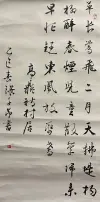 草長鶯飛二月天拂堤楊
柳醉春煙兒童散學歸來
早忙趁東風放紙鳶
高鼎詩村居
書